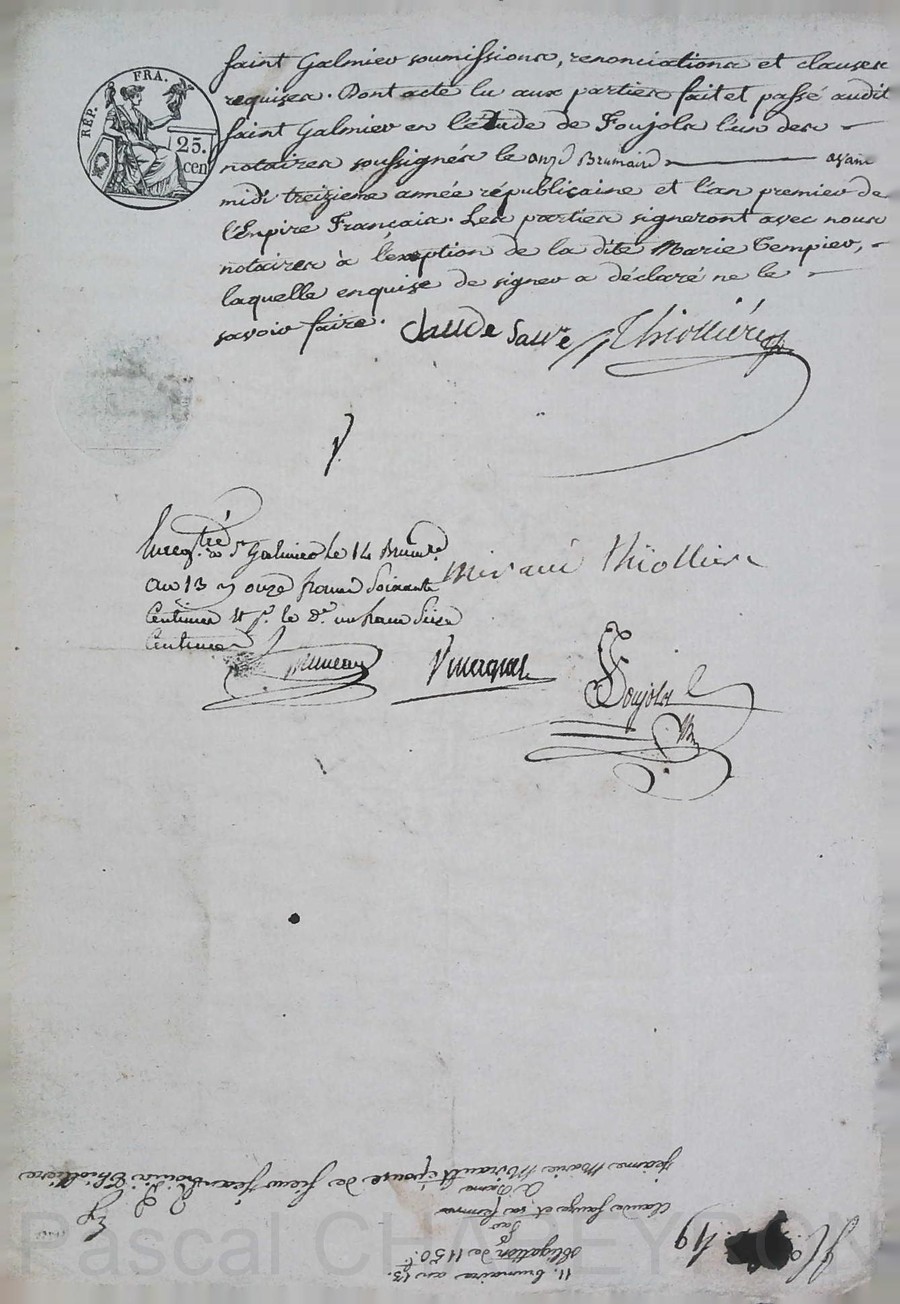 RÉP. FRA.
25.
cen
saint Galmier soumissions, renonciations et clauses
requises. Dont acte lu aux parties fait et passé audit
saint Galmier en l'etude de Foujols l'un des
notaires soussignés le onze Brumaire avant
midi treizieme année républicaine et l'an premier de
l'Empire Français. Les parties signeront avec nous
notaires à l'exeption de la dite Marie Tempier,
laquelle enquise de signer a déclaré ne le
savoir faire.
Claude Sauve Thiollière
Enreg.tré a St Galmier le 14 Brum.re
an 13 onze francs Soixante
Centimes le d.e un franc Seize
Centimes
Miraud thiolliere
Foujols
11. brumaire an 13.
Obligation de 1150.
Par
Claude Sauze et sa femme
A Dame
Jeanne Marie Mirault épouse de sieur Jean Louis Thiolliere
No 49
Pascal CHAPEYRON